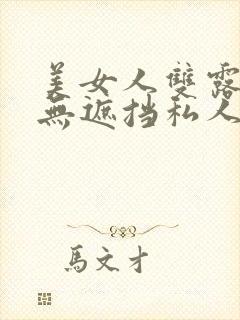 美女人雙露
無遮挡私人
馬文才